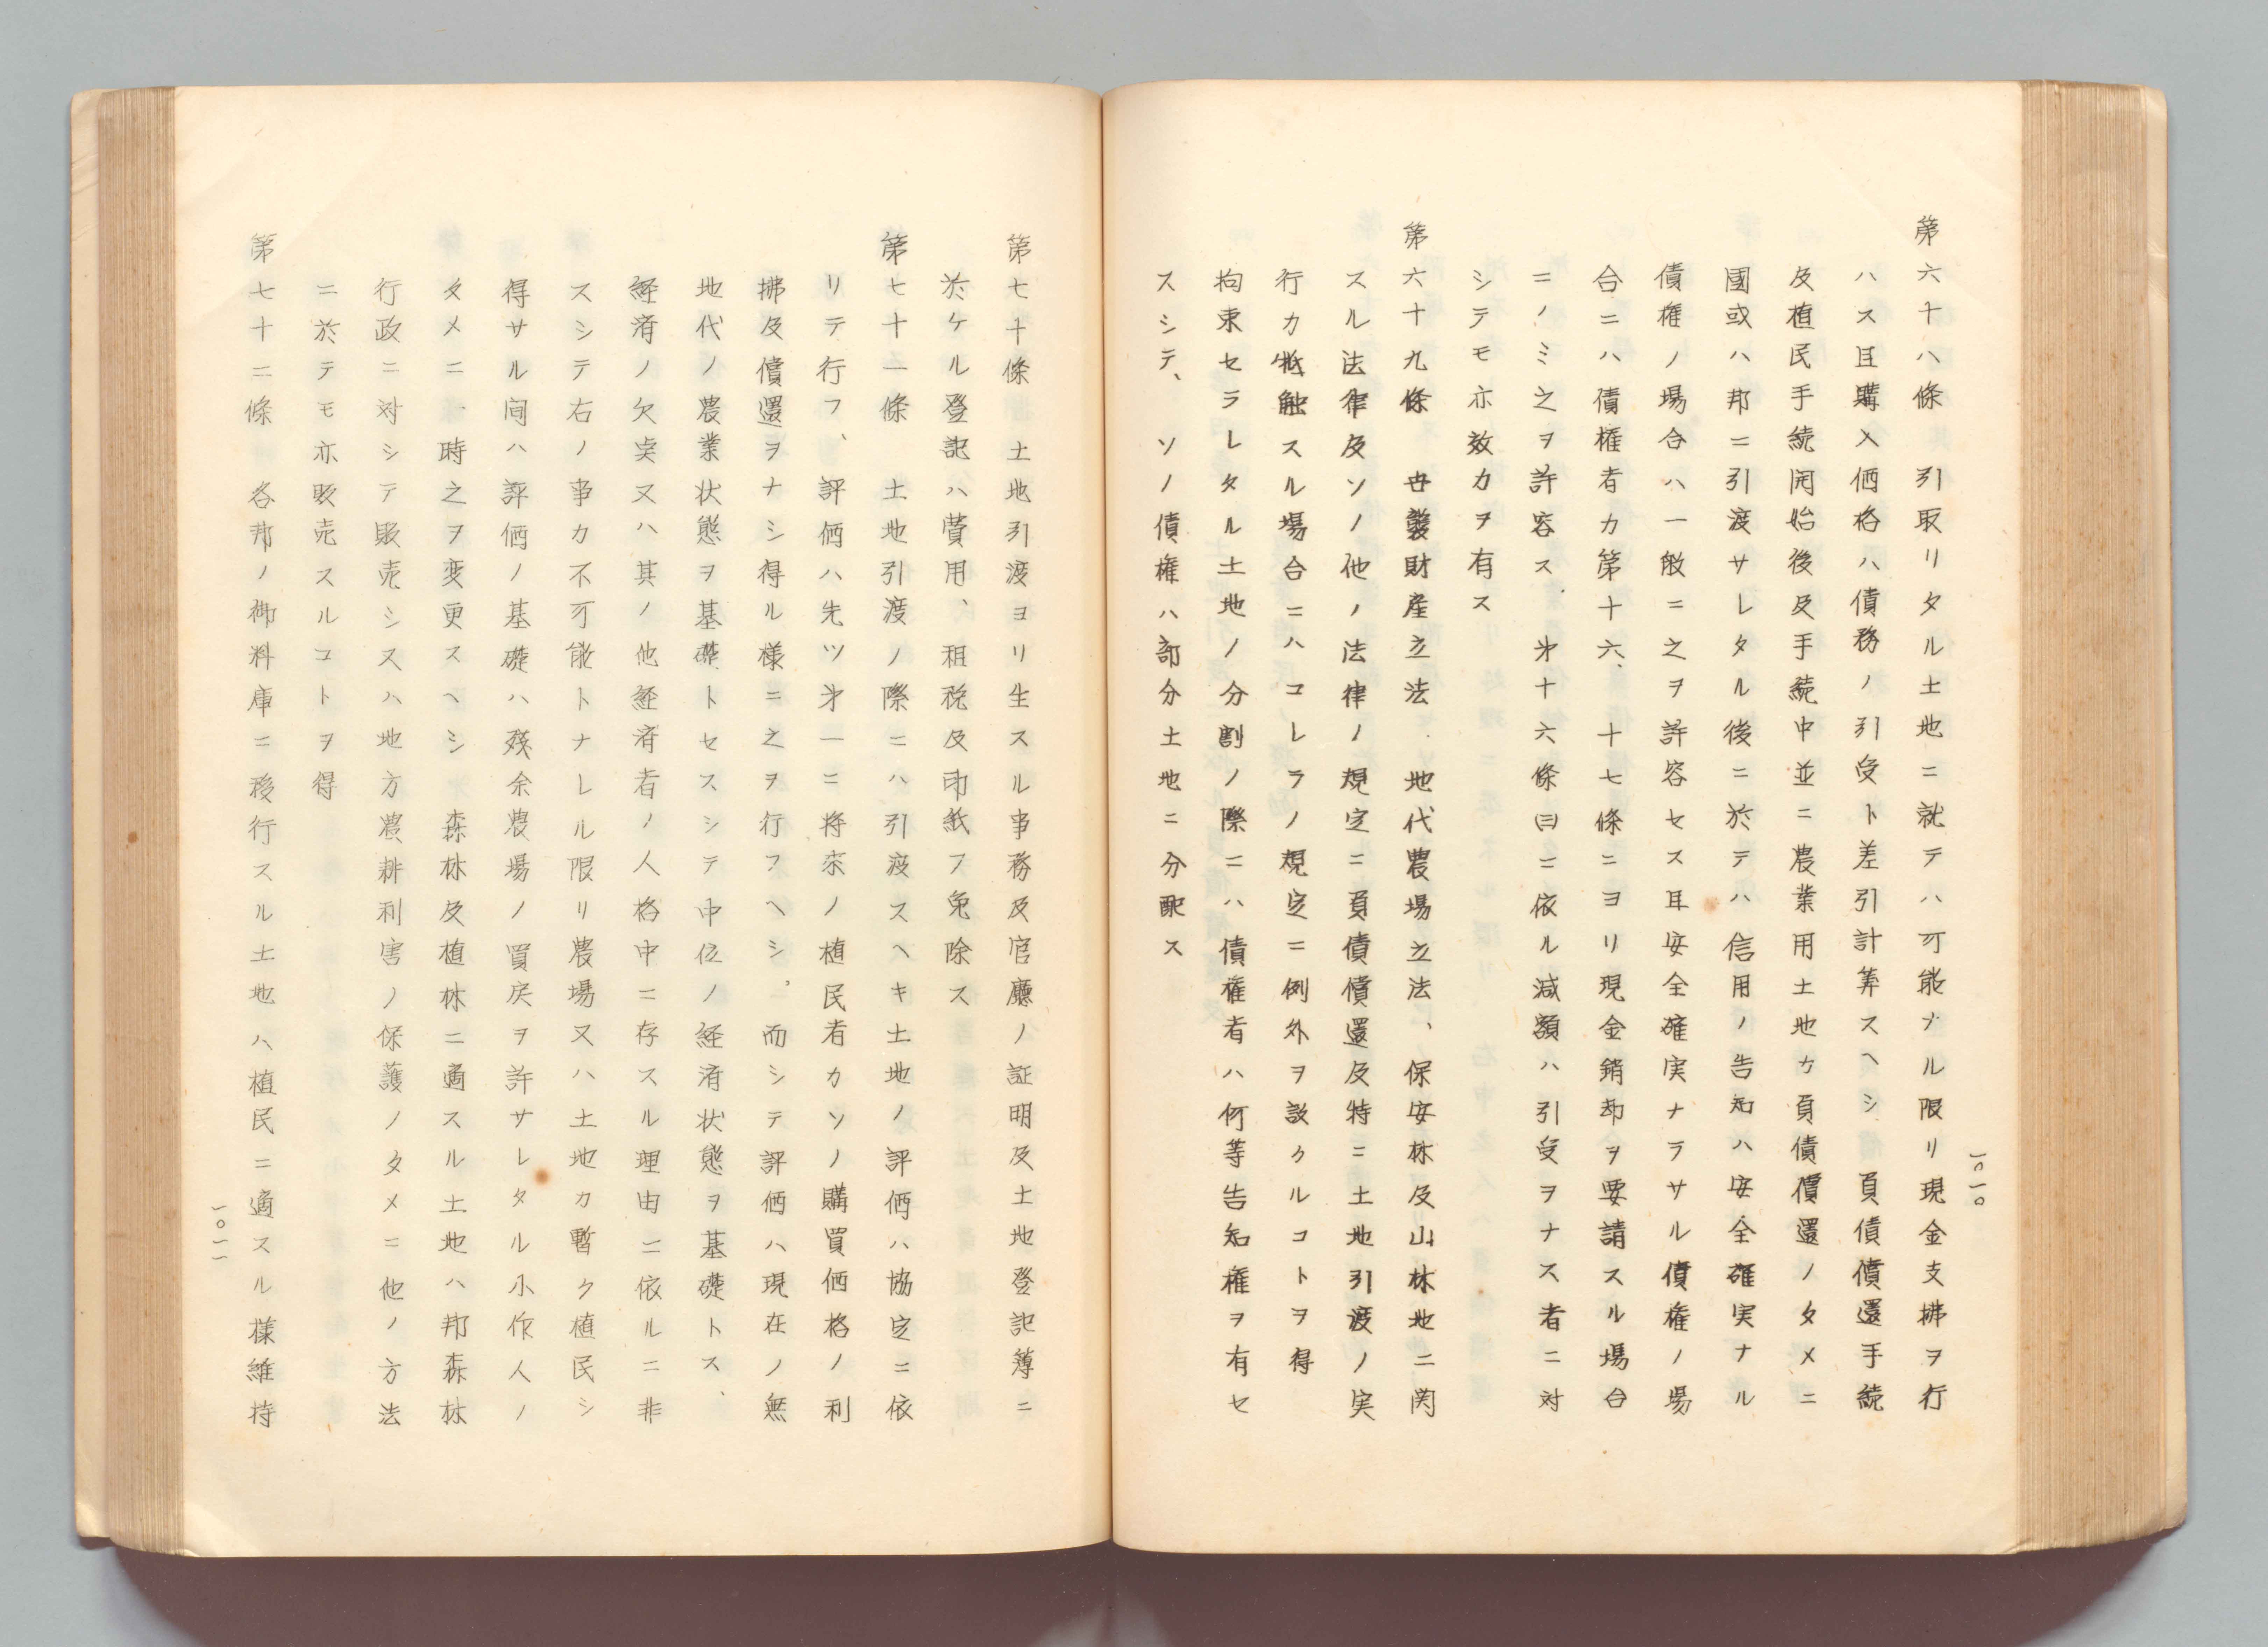 一〇一〇
第六十八條　引取リタル土地ニ就テハ可能ナル限リ現金支拂ヲ行
ハス且購入価格ハ債務ノ引受ト差引計算スヘシ　負債償還手続
及植民手続開始後及手続中並ニ農業用土地カ負債償還ノタメニ
國或ハ邦ニ引渡サレタル後ニ於テハ信用ノ告知ハ安全確実ナル
債権ノ場合ハ一般ニ之ヲ許容セス且安全確実ナラサル債権ノ場
合ニハ債権者カ第十六、十七條ニヨリ現金銷却ヲ要請スル場合
ニノミ之ヲ許容ス　才十六條㈢ニ依ル減額ハ引受ヲナス者ニ対
シテモ亦效力ヲ有ス
第六十九條　世襲財産立法、地代農場立法、保安林及山林地ニ関
スル法律及ソノ他ノ法律ノ規定ニ負債償還及特ニ土地引渡ノ実
行カ牴触スル場合ニハコレラノ規定ニ例外ヲ設クルコトヲ得
拘束セラレタル土地ノ分割ノ際ニハ債権者ハ何等告知権ヲ有セ
スシテ、ソノ債権ハ部分土地ニ分配ス
第七十條　土地引渡ヨリ生スル事務及官廳ノ証明及土地登記簿ニ
於ケル登記ハ費用、租税及印紙ヲ免除ス
第七十一條　土地引渡ノ際ニハ引渡スヘキ土地ノ評価ハ協定ニ依
リテ行フ、評価ハ先ツ才一ニ将來ノ植民者カソノ購買価格ノ利
拂及償還ヲナシ得ル様ニ之ヲ行フヘシ。而シテ評価ハ現在ノ無
地代ノ農業状態ヲ基礎トセスシテ中位ノ経済状態ヲ基礎トス、
経済ノ欠実又ハ其ノ他経済者ノ人格中ニ存スル理由ニ依ルニ非
スシテ右ノ事カ不可能トナレル限リ農場又ハ土地カ暫ク植民シ
得サル間ハ評価ノ基礎ハ残余農場ノ買戻ヲ許サレタル小作人ノ
タメニ一時之ヲ変更スヘシ　森林及植林ニ適スル土地ハ邦森林
行政ニ対シテ販売シ又ハ地方農耕利害ノ保護ノタメニ他ノ方法
ニ於テモ亦販売スルコトヲ得
第七十二條　各邦ノ御料庫ニ移行スル土地ハ植民ニ適スル様維持
一〇一一